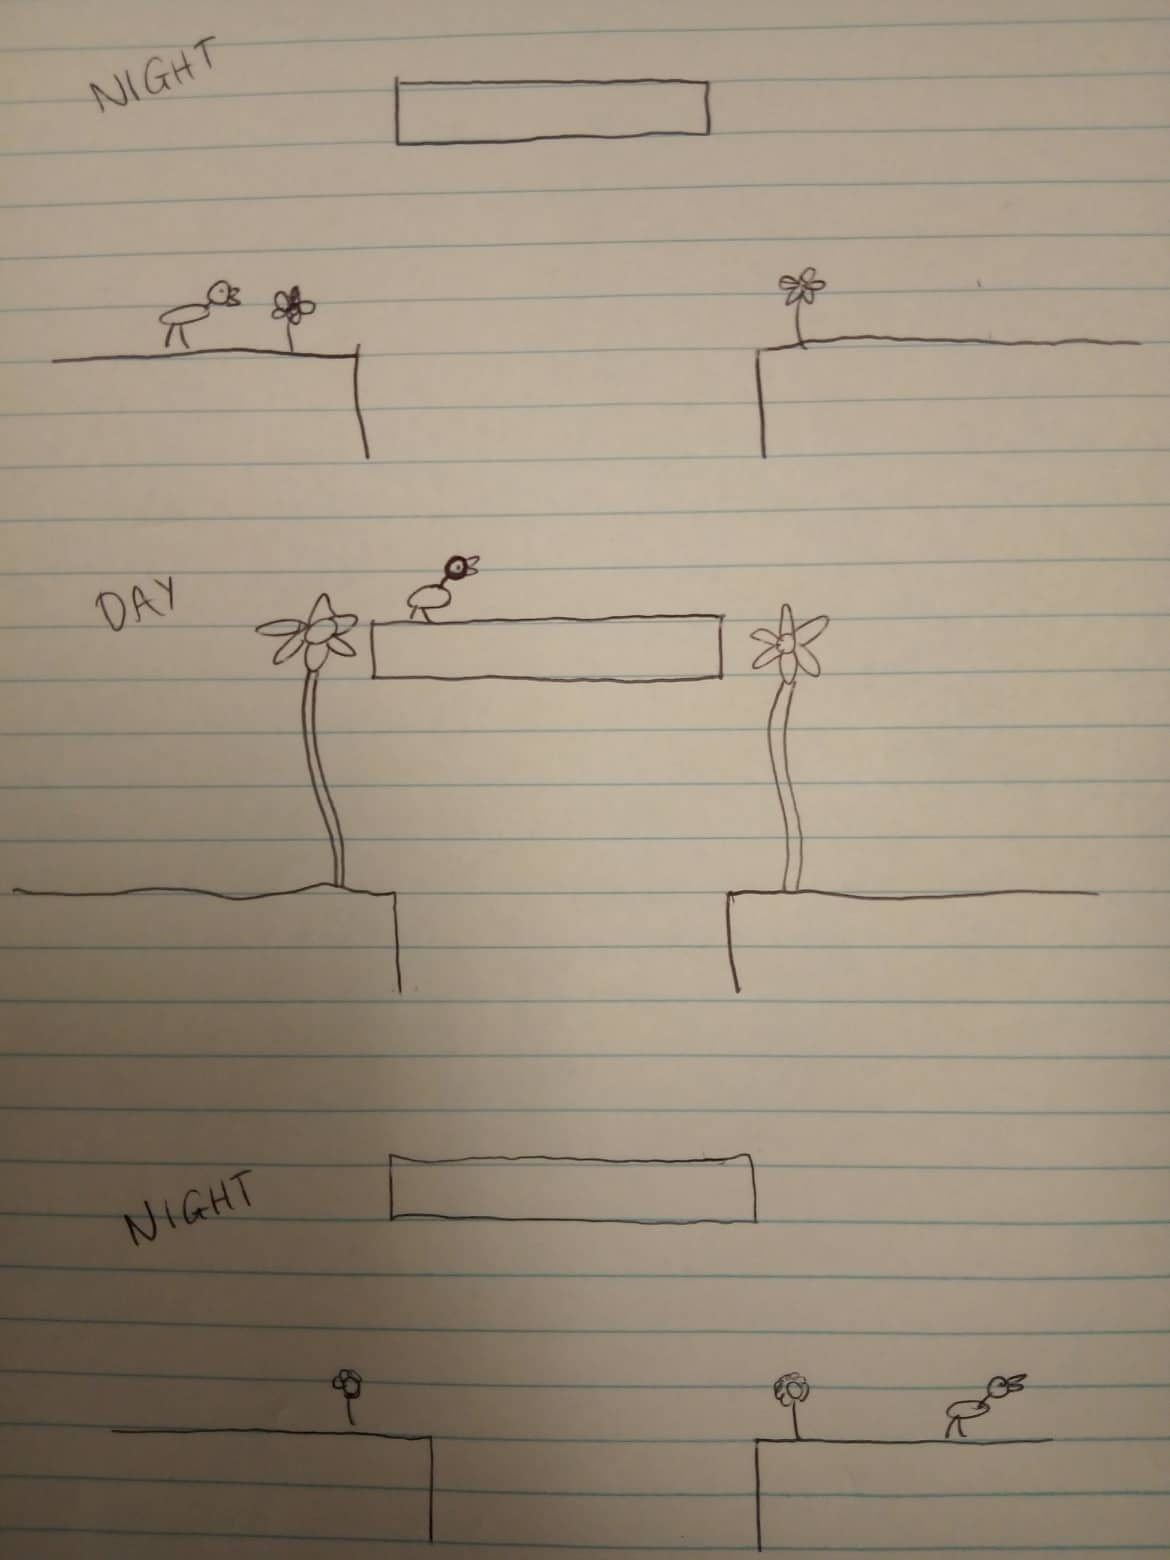 NIGHT
DAY
NIGHT